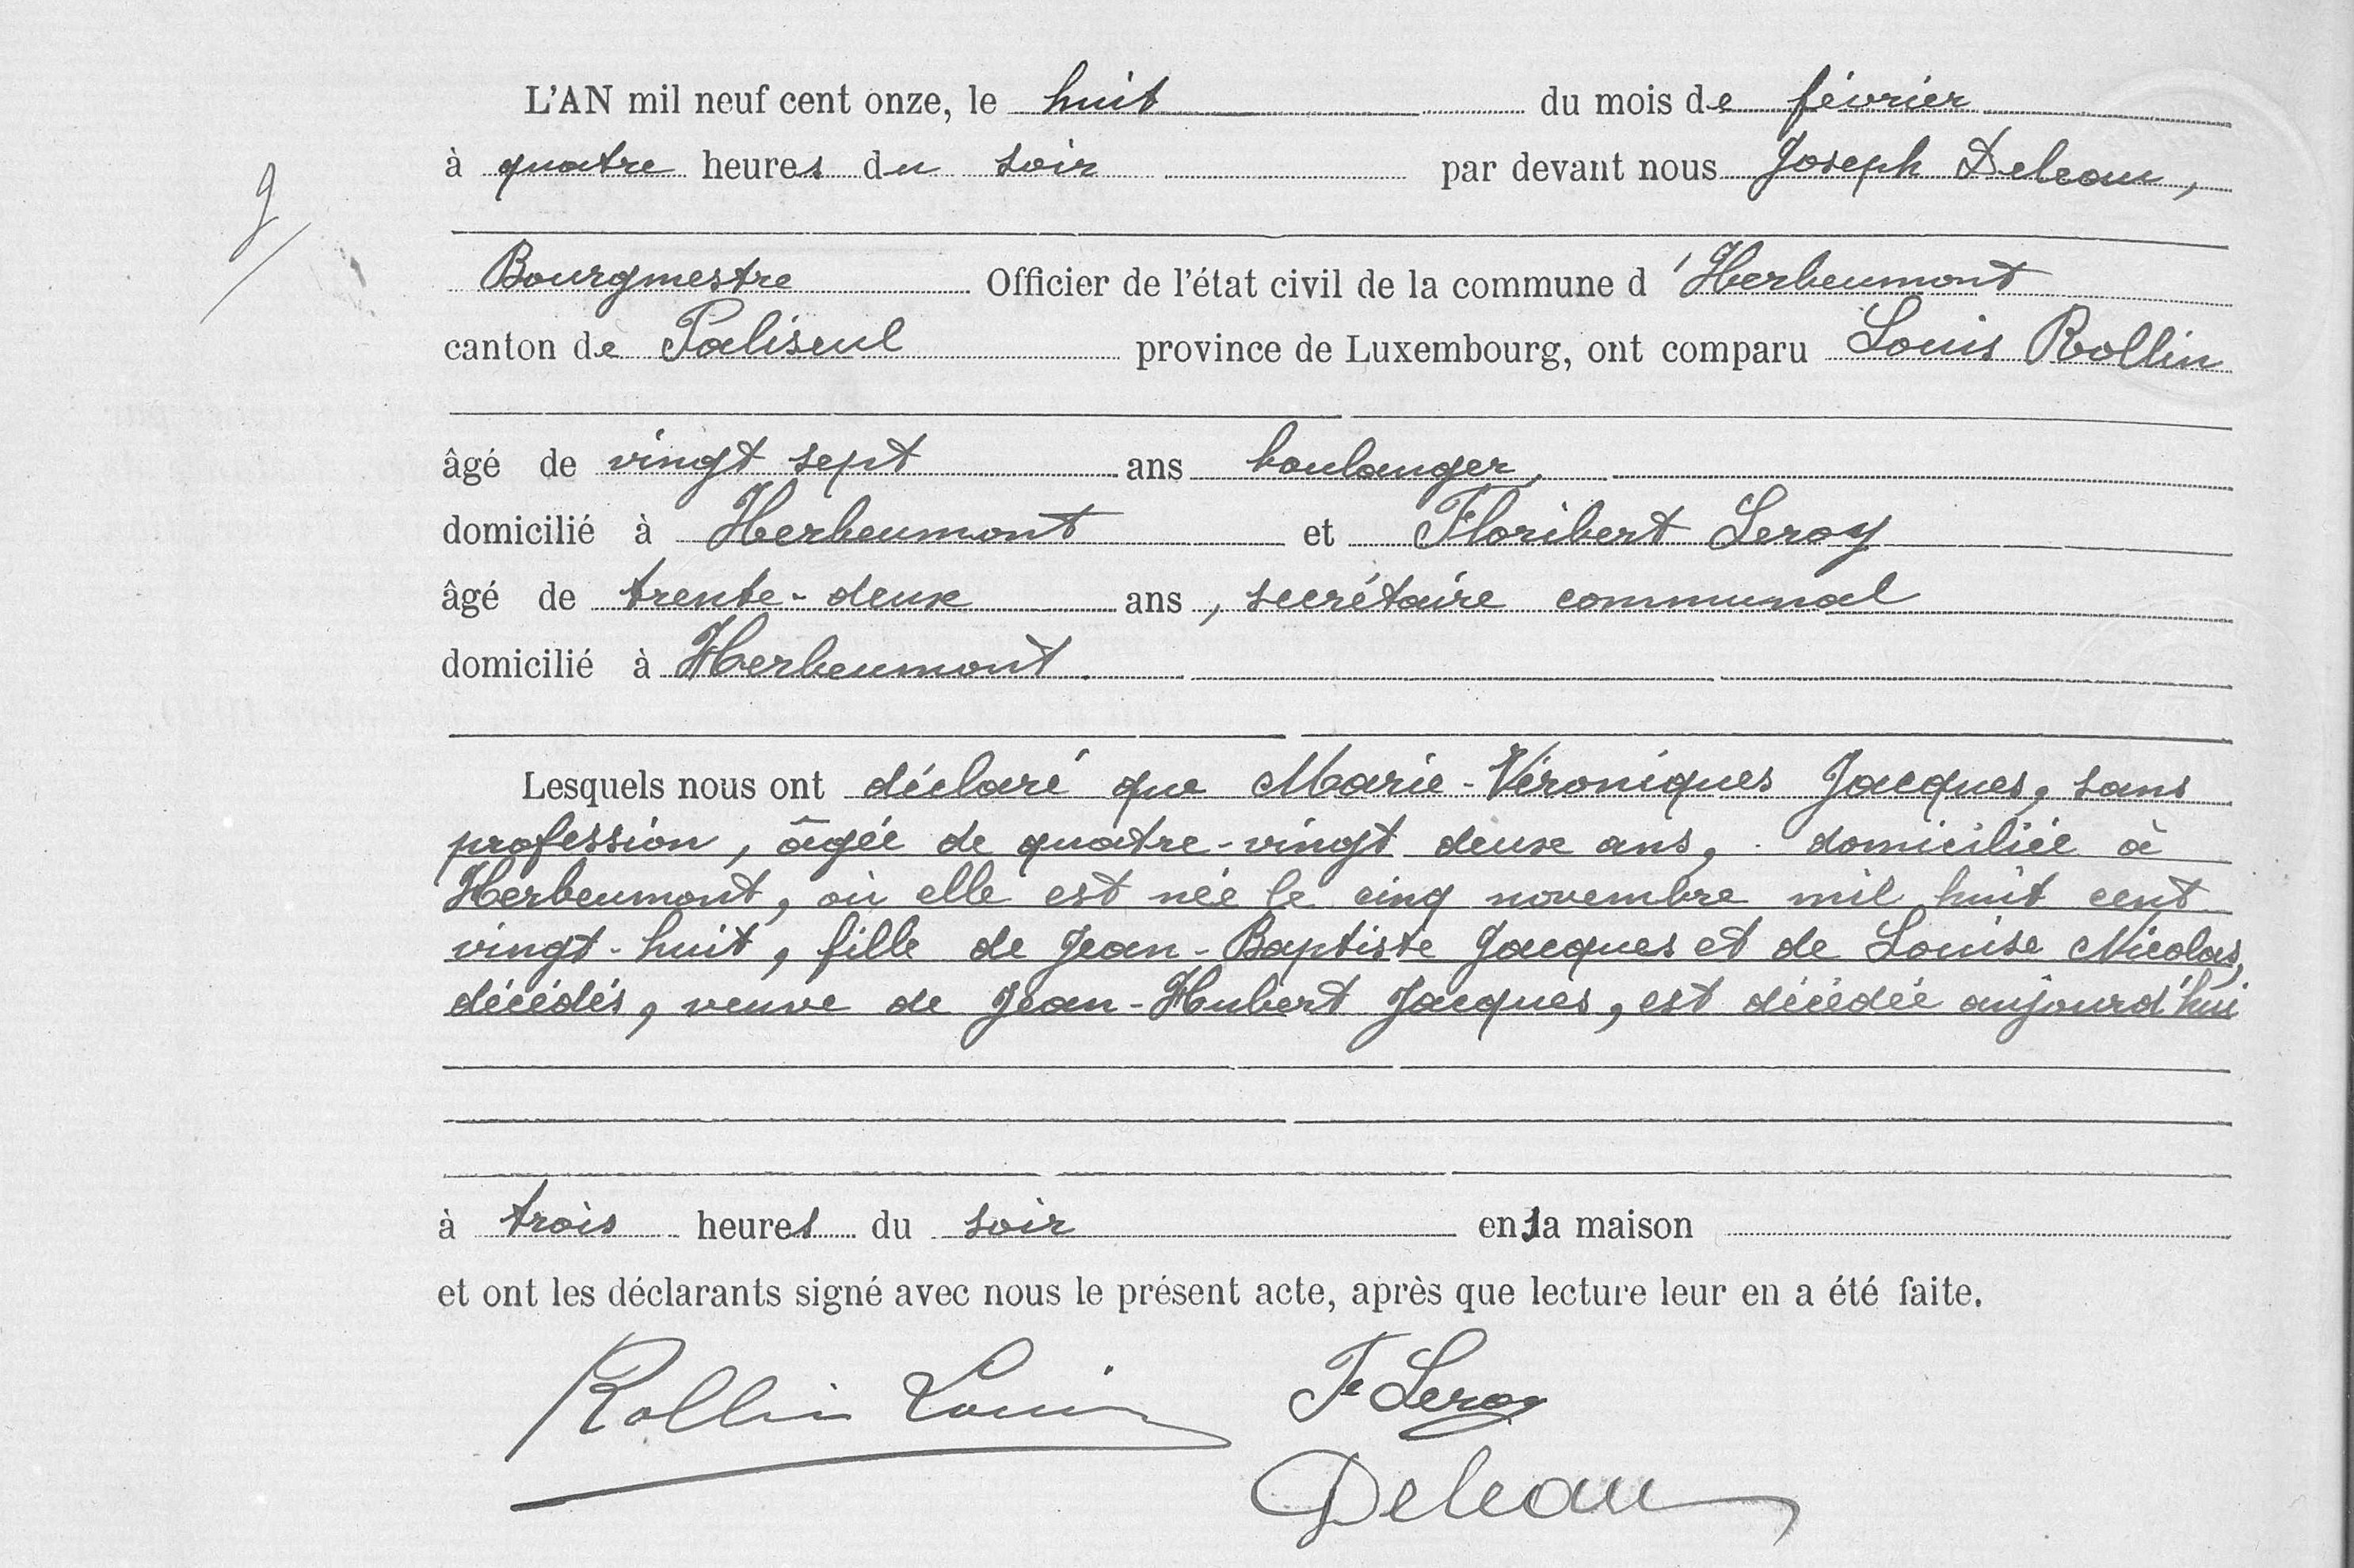 L'AN mil neuf cent onze, le huit du mois de février
à quatre heures du soir par devant nous Joseph Deleau,
Bourgmestre Officier de l'état civil de la commune d'Herbeumont
canton de Paliseul province de Luxembourg, ont comparu Louis Rollin
âgé de vingt sept ans boulanger,
domicilié à Herbeumont et Floribert Leroy
âgé de trente-deux ans, secrétaire communal
domicilié à Herbeumont.
Lesquels nous ont déclaré que Marie-Véroniques Jacques, sans
profession, âgée de quatre-vingt deux ans, domiciliée à
Herbeumont, où elle est née le cinq novembre mil huit cent
vingt-huit, fille de Jean-Baptiste Jacques et de Louise Nicolas,
décédés, veuve de Jean-Hubert Jacques, est décédée aujourd'hui
à trois heures du soir en sa maison
et ont les déclarants signé avec nous le présent acte, après que lecture leur en a été faite.
Rollin Louis Fe Leroy
Deleau